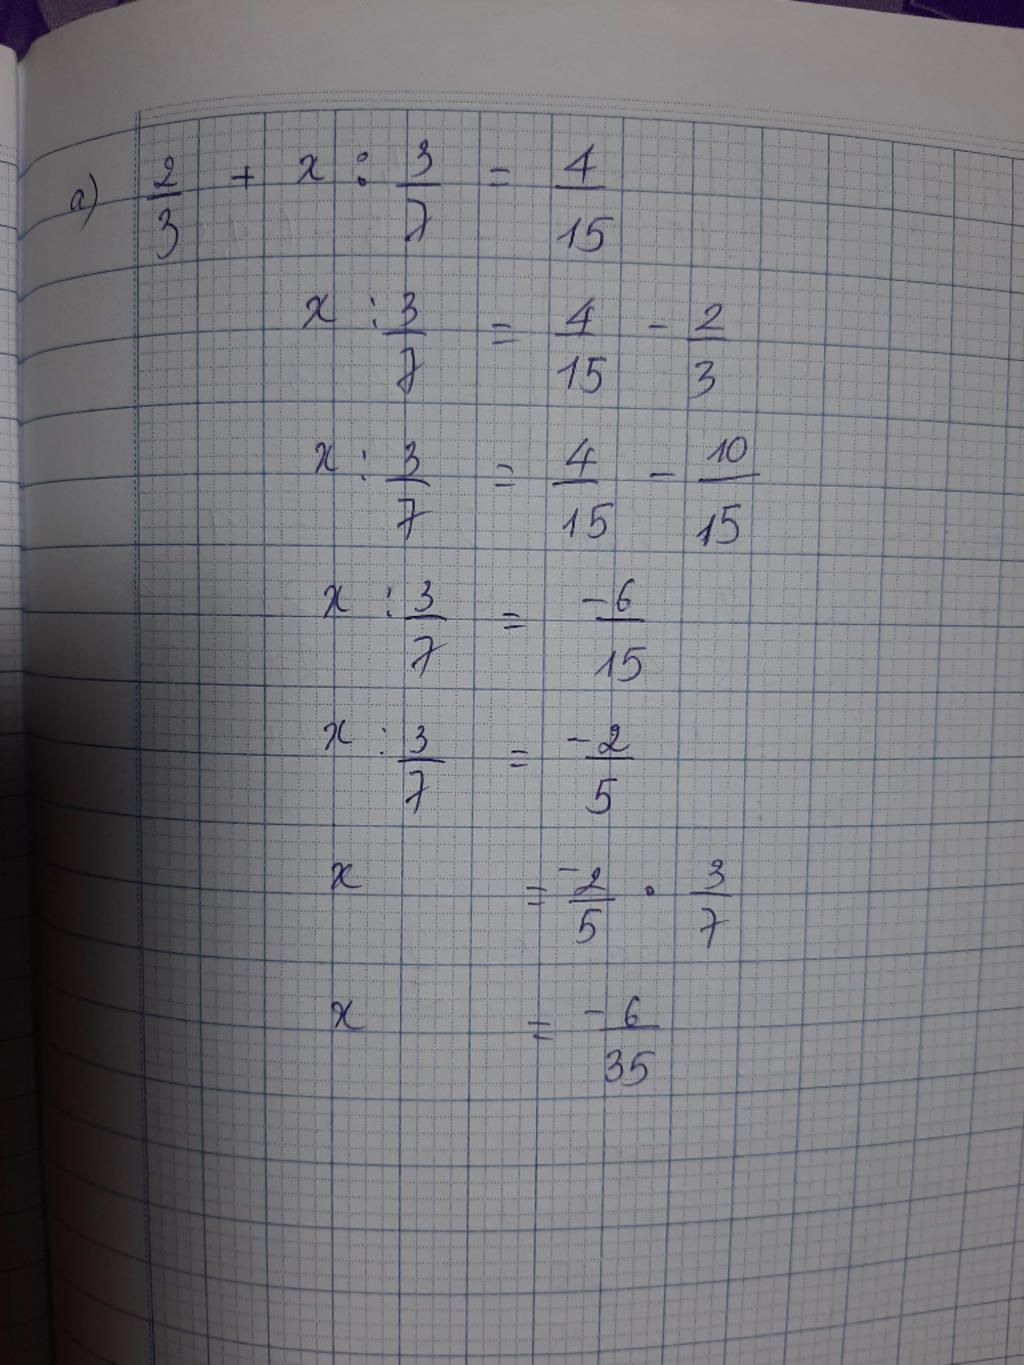 a) 2/3 + x : 3/7 = 4/15
x : 3/7 = 4/15 - 2/3
x : 3/7 = 4/15 - 10/15
x : 3/7 = -6/15
x : 3/7 = -2/5
x = -2/5 . 3/7
x = -6/35